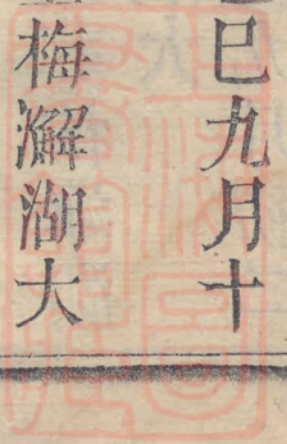 巳九月十
梅澥湖大